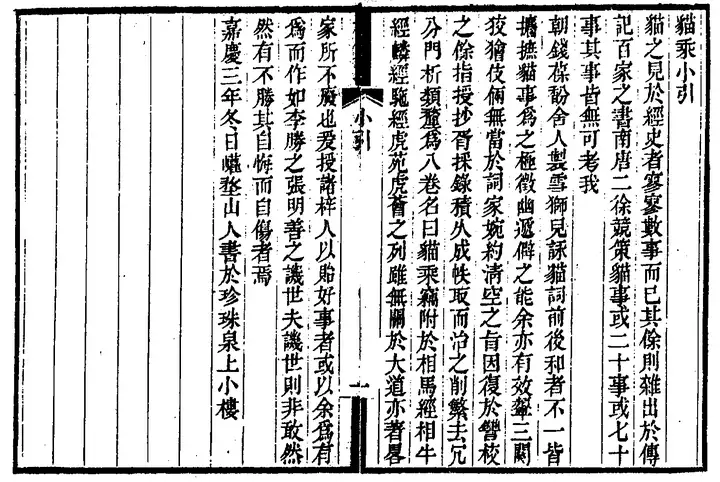 貓乘小引
貓之見於經史者寥寥數事而已其餘則雜出於傳
記百家之書南唐二徐競策貓事或二十事或七十
事其事皆無可考我
朝錢葆馚舍人製雪獅兒詠貓詞前後和者不一皆
攟摭貓事爲之極徵幽遯僻之能余亦有效顰三闋
狡獪伎倆無當於詞家婉約淸空之旨因復於讐校
之餘指授抄胥採錄積久成帙取而治之削繁去冗
分門析類釐爲八卷名曰貓乘竊附於相馬經相牛
經麟經駝經虎苑虎薈之列雖無關於大道亦著畧
小引
一
家所不廢也爰授諸梓人以貽好事者或以余爲有
爲而作如李勝之張明善之譏世夫譏世則非敢然
然有不勝其自悔而自傷者焉
嘉慶三年冬日蠛蝥山人書於珍珠泉上小樓